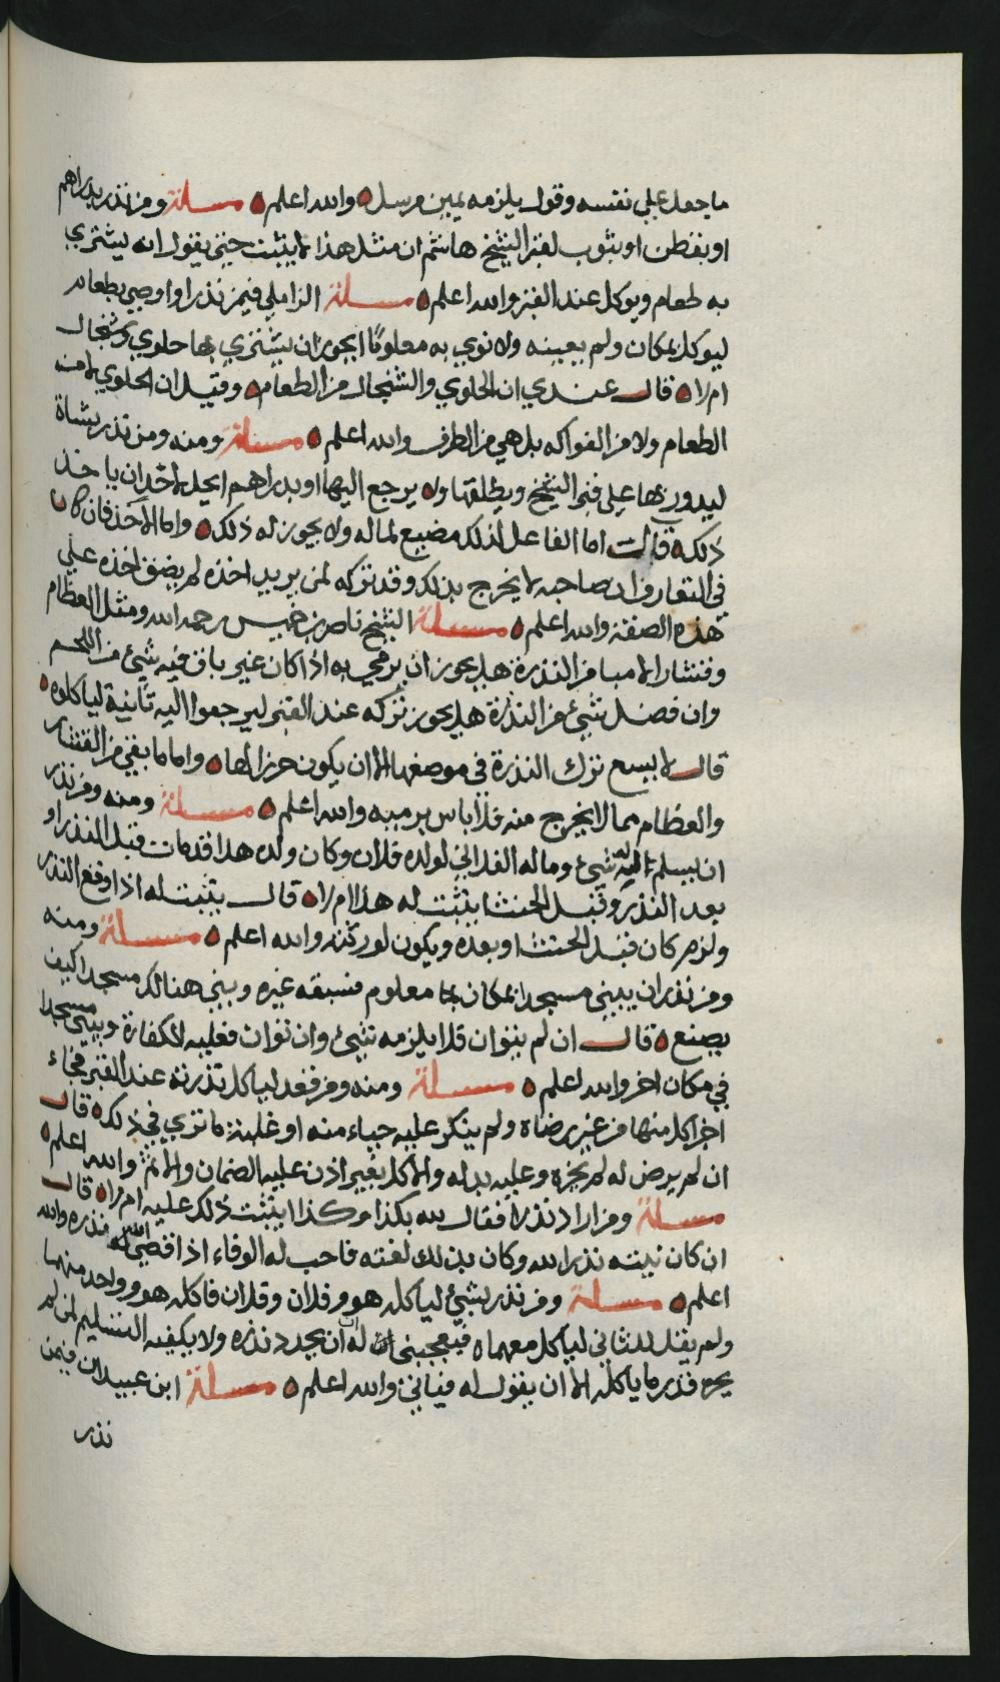 ما جعل على نفسه وقول يلزمه يمين مرسل والله اعلم مسئلة ومن نذر بدراهم
او بقطن او بثوب لقبر الشيخ هاشم ان مثل هذا لا يثبت حتى يقول انه يشتري
به طعام ويوكل عند القبر والله اعلم مسئلة الزاملي فيمن نذر او اوصى بطعام
ليوكل بمكان ولم يعينه ولا نوى به معلوما ايجوز ان يشتري بها حلوى وشنجال
ام لا قال عندي ان الحلوى والشنجال من الطعام وقيل ان الحلوى لا من
الطعام ولا من الفواكه بل هي من الطرف والله اعلم مسئلة ومنه ومن نذر بشاة
ليدور بها على قبر الشيخ ويطلقها ولا يرجع اليها او بدراهم ايحل لاحد ان ياخذ
ذلك قال اما الفاعل لذلك مضيع لماله ولا يجوز له ذلك واما الاخذ فان كان
في التعارف ان صاحبه لا يخرج بذلك وقد تركه لمن يريد اخذه لم يضق اخذه على
هذه الصفة والله اعلم مسئلة الشيخ ناصر بن خميس رحمه الله ومثل العظام
وقشار الامبا من النذرة هل يجوز ان يرمى به اذا كان غير باق فيه شيئ من اللحم
وان فضل شيئ من النذرة هل يجوز تركه عند القبر ليرجعوا اليه ثانية لياكلوه
قال لا يسع ترك النذرة في موضعها الا ان يكون حرزا لها واما ما بقي من القشار
والعظام مما لا يخرج منه فلا باس برميه والله اعلم مسئلة ومنه ومن نذر
ان يسلم اليه شيئ وماله الفلاني لولده فلان وكان ولده هذا قد مات قبل النذر او
بعد النذر وقبل الحنث ايثبت له هذا ام لا قال يثبت له اذا وقع النذر
ولزم كان قبل الحنث او بعده ويكون لورثته والله اعلم مسئلة ومنه
ومن نذر ان يبني مسجدا بمكان معلوم فسبقه غيره وبنى هنالك مسجدا كيف
يصنع قال ان لم ينو ان فلا يلزمه شيئ وان نوان فعليه الكفارة ويبني مسجدا
في مكان اخر والله اعلم مسئلة ومنه ومن قعد لياكل نذرته عند القبر فجاء
اخر اكل منها من غير رضاه ولم ينكر عليه حياء منه او غلبة ما ترى في ذلك قال
ان لم يرض له لم يجزه وعليه بدله والاكل بغير اذن عليه الضمان والاثم والله اعلم
مسئلة ومن اراد نذرا فقال لله بكذا وكذا ايثبت ذلك عليه ام لا قال
ان كان نيته نذرا لله وكان بذلك لغته فاحب له الوفاء اذا قضى الله له نذره والله
اعلم مسئلة ومن نذر بشيئ لياكله هو وفلان وفلان فاكله هو وواحد منهما
ولم يقل للثاني لياكل معهما فيعجبني له ان يجدد نذره ولا يكفيه التسليم لمن لم
قدر ما ياكله الا ان يقول له فياتي والله اعلم مسئلة ابن عبيدان فيمن
نذر